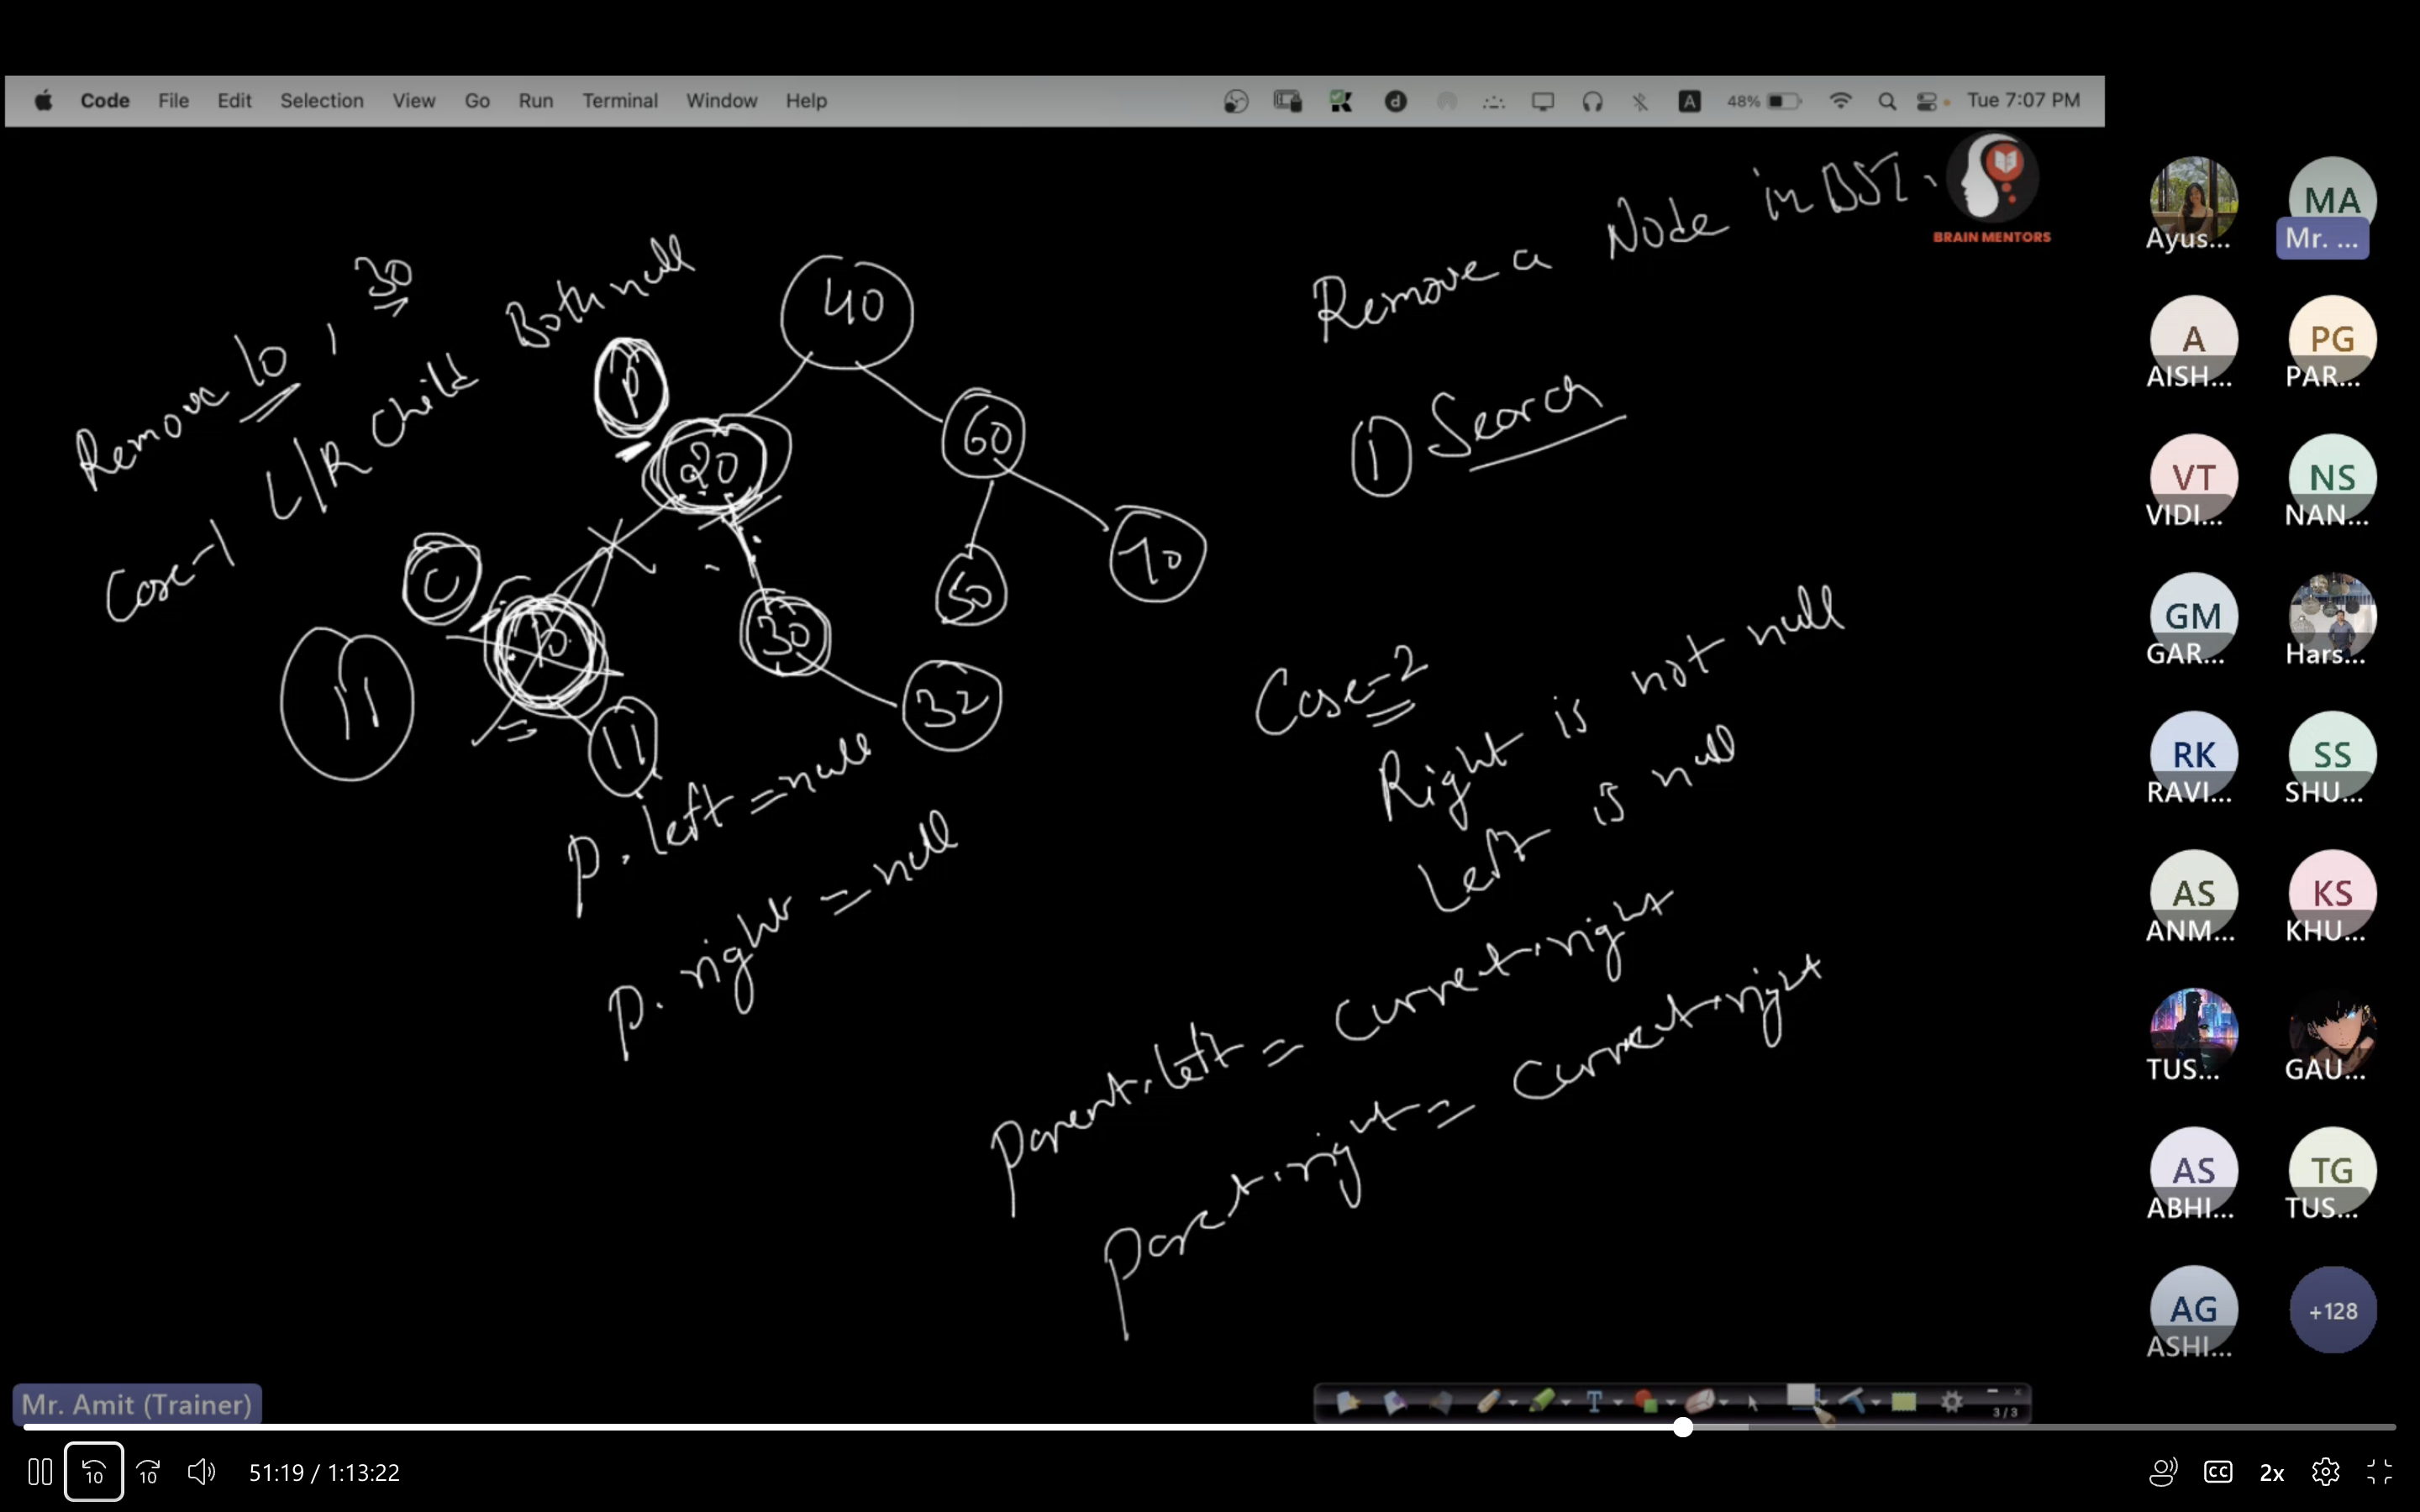 Code File Edit Selection View Go Run Terminal Window Help
A 48% Tue 7:07 PM
Remove a Node in BST.
BRAIN MENTORS
Remove 10, 30
Case-1 L/R Child Both null
40
P
20
60
C
10
30
50
70
11
11
32
p.left = null
p.right = null
① Search
Case-2
Right is not null
Left is null
Parent.left = Current.right
Parent.right = Current.right
Ayus...
MA
Mr. ...
A
AISH...
PG
PAR...
VT
VIDI...
NS
NAN...
GM
GAR...
Hars...
RK
RAVI...
SS
SHU...
AS
ANM...
KS
KHU...
TUS...
GAU...
AS
ABHI...
TG
TUS...
AG
ASHI...
+128
Mr. Amit (Trainer)
T
3/3
10 10 51:19 / 1:13:22 CC 2x